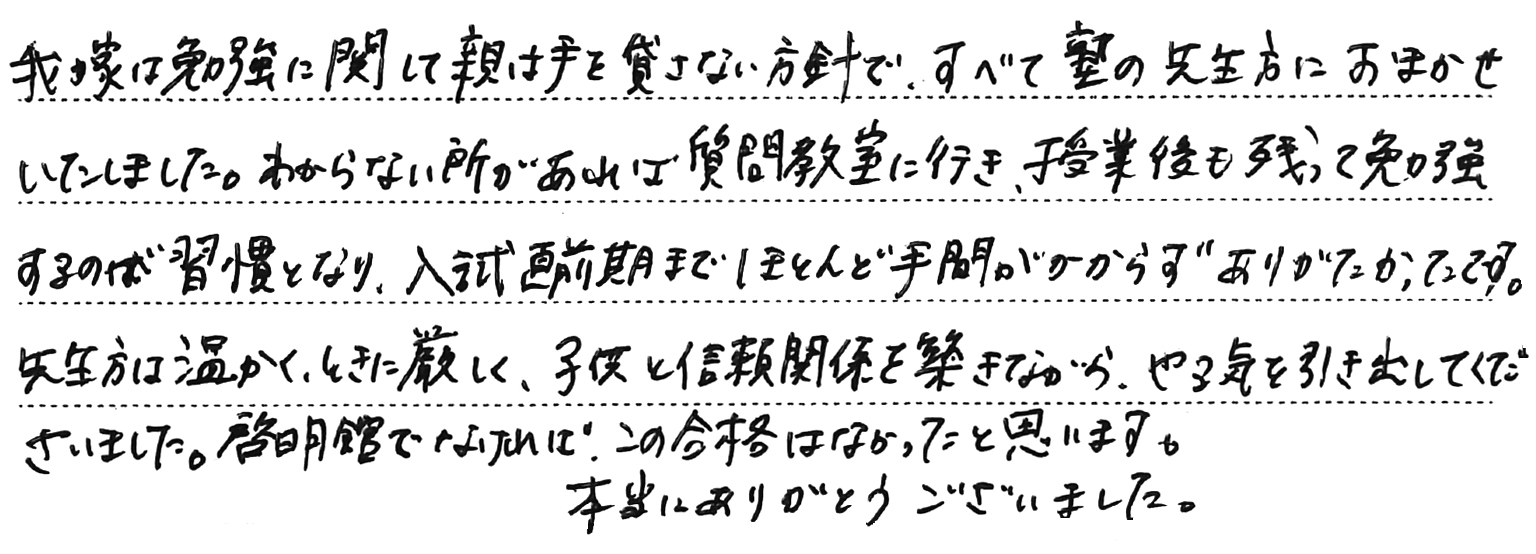 我が家は勉強に関して親は手を貸さない方針で、すべて塾の先生方におまかせ
いたしました。わからない所があれば質問教室に行き、授業後も残って勉強
するのが習慣となり、入試直前期までほとんど手間がかからずありがたかったです。
先生方は温かく、ときに厳しく、子供と信頼関係を築きながら、やる気を引き出してくだ
さいました。啓明館でなければ、この合格はなかったと思います。
本当にありがとうございました。